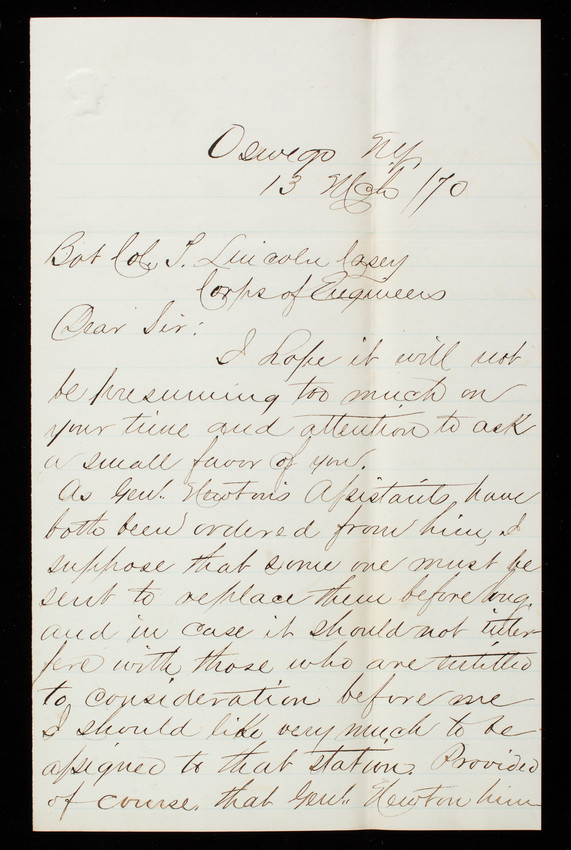 Oswego NY,
13 Mch /70
Bvt Col. T. Lincoln Casey
Corps of Engineers
Dear Sir:
I hope it will not
be presuming too much on
your time and attention to ask
a small favor of you.
As Genl. Newton's Assistants have
both been ordered from him, I
suppose that some one must be
sent to replace them before long,
and in case it should not inter-
fere with those who are entitled
to consideration before me
I should like very much to be
assigned to that station. Provided
of course, that Genl. Newton him-